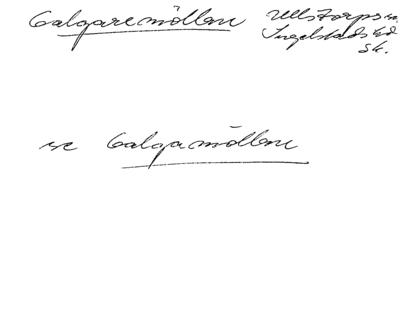 Galgaremöllan Ullstorps sn.
Ingelstads hd
Sk.
se Galgamöllan